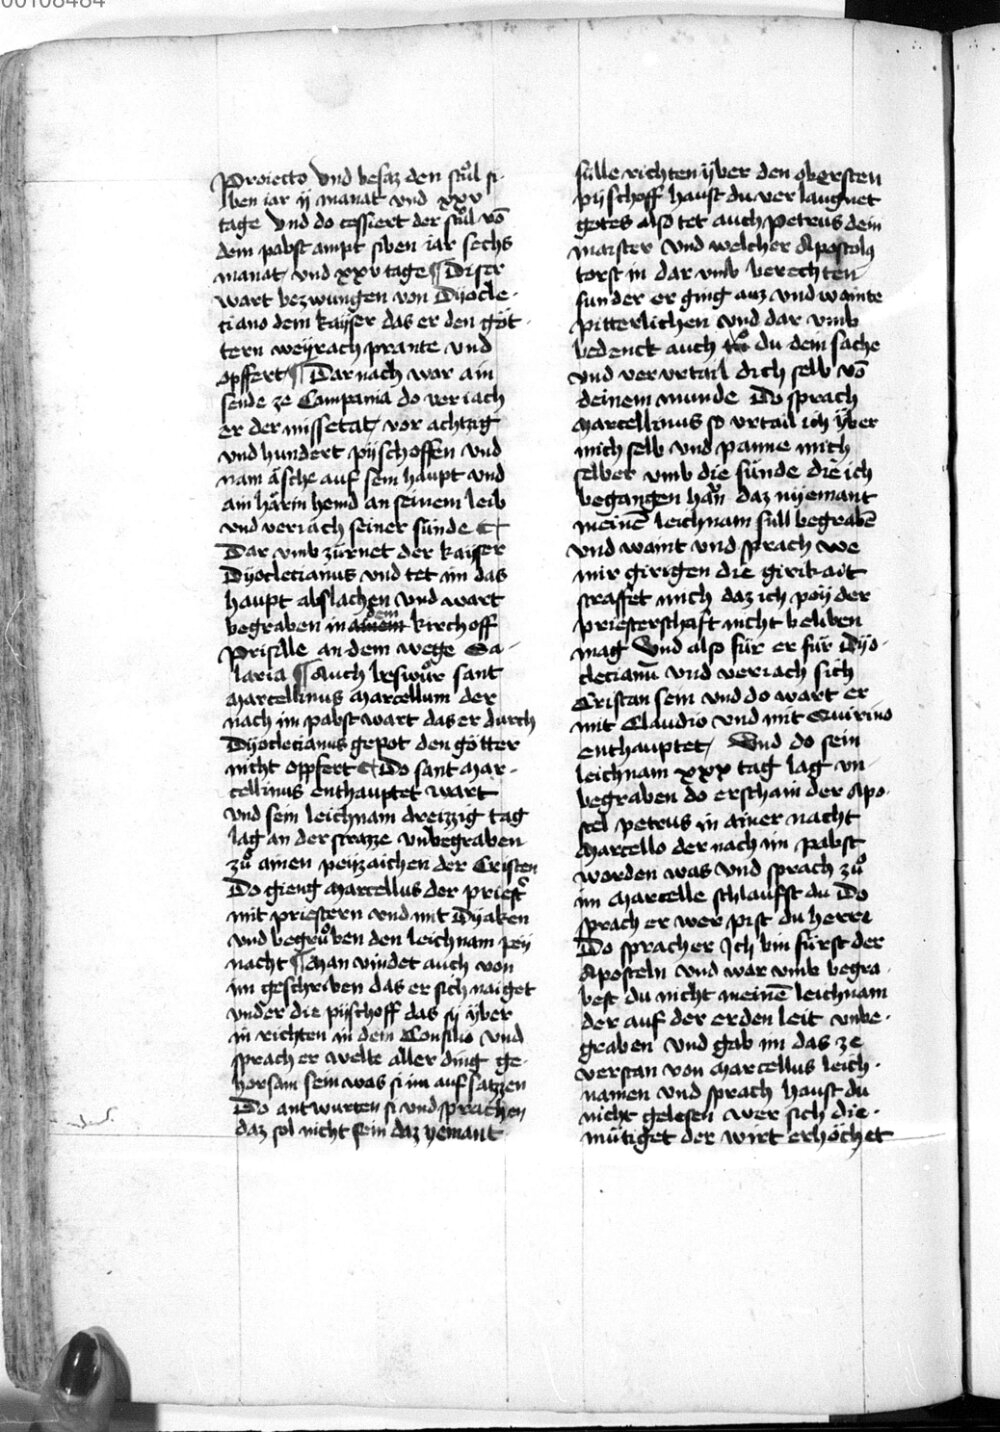 00108484
Proiecto vnd besaz den stůl si-
ben iar ij manat vnd xxv
tage vnd do cessiert der stůl võ
dem pabst ampt siben iar sechs
manat vnd xxv tage ¶ Diser
wart bezwungen von Dyocle-
tiano dem kaÿser das er den göt-
tern weÿrach prante vnd
opffert ¶ Dar nach war ain
sende ze Campania do veriach
er der missetat vor achtzig
vnd hundert pÿschoffen vnd
nam äsche auf sein haupt vnd
ain härin hemd an seinem leib
vnd veriach seiner sünde
Dar vmb zürnet der kaÿser
Dyocletianus vnd tet im das
haupt abslachen vnd wart
begraben in dem kirchoff
Prisille an dem wege Sa-
laria ¶ Auch beswůr sant
Marcellinus Marcellum der
nach im pabst wart das er durch
Dyocletianus gepot den götter
nicht opffert Do sant Mar-
cellinus enthauptet wart
vnd sein leichnam dreizzig tag
lag an der strazze vnbegraben
zů ainen peÿzaichen der Cristen
Do gieng Marcellus der priest
mit priestern vnd mit Dyaken
vnd begrůben den leichnam peÿ
nacht ¶ Man vindet auch von
im geschriben das er sich naiget
vnder die pÿschoff das sy ÿber
in richten in dem Consilio vnd
sprach er welte aller ding ge-
horsam sein was si im auf satzzen
Do antwurten si vnd sprachen
daz sol nicht sein daz yemant
sülle richten ÿber den obersten
pÿschoff haust du verlaugnet
gotes also tet auch Petrus dein
maister vnd welcher Apostolus
torst in dar vmb berechten
sunder er ging auz vnd wainte
pitterlichen vnd dar vmb
bedenck auch du dein sache
vnd vervrtail dich selb võ
deinem munde Do sprach
Marcellinus so vrtail ich ÿber
mich selb vnd panne mich
selber vmb die sünde die ich
begangen han daz nyemant
meinē leichnam süll begrabē
vnd waint vnd sprach we
mir girigen die girikait
straffet mich daz ich peÿ der
priesterschaft nicht beliben
mag Vnd also für er für Dyo-
cletianū vnd veriach sich
Cristan sein vnd do wart er
mit Claudio vnd mit Quirino
enthauptet / Vnd do sein
leichnam xxx tag lag vn-
begraben do erschain der Apo-
stel petrus in ainer nacht
Marcello der nach im pabst
worden was vnd sprach zů
im Marcelle schlaufst du Do
sprach er wer pist du herre
Do sprach er Ich bin fürst der
Aposteln vnd war vmb begra-
best du nicht meinē leichnam
der auf der erden leit vnbe-
graben vnd gab im das ze
verstan von Marcellus leich-
namen vnd sprach haust du
nicht gelesen wer sich die-
mütiget der wirt erhöchet